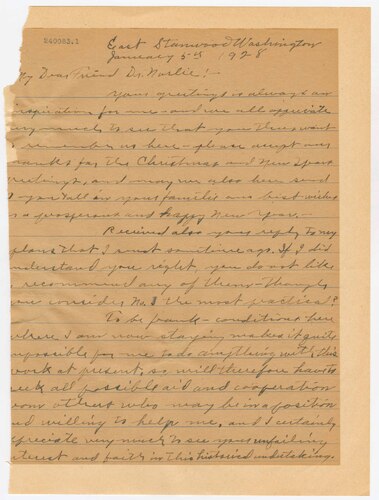 240083.1
East Stanwood Washington
January 5th 1928
My Dear Friend Dr. Norlie:-
Your greeting is always an
inspiration for me - and we all appreciate
very much to see that you thus want
to remember us here - please accept our
thanks for the Christmas and New Years
greetings, and may we also here send
to you all in your families our best wishes
a prosperous and happy New Year.-
Received also your reply to my
plans that I sent sometime ago. If I did
understand you right, you do not like
recommend any of them - though
one consider No. 3 the most practical?
To be frank - conditions here
where I am now staying makes it quite
impossible for me to do anything with this
work at present, so will therefore have to
seek all possible aid and cooperation
from others who may be in a position
and willing to help me, and I certainly
appreciate very much to see your unfailing
interest and faith in this historical undertaking.